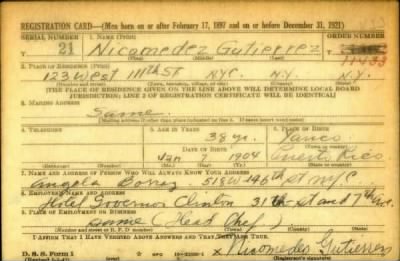 REGISTRATION CARD—(Men born on or after February 17, 1897 and on or before December 31, 1921)
SERIAL NUMBER 1. NAME (Print) ORDER NUMBER
21 Nicomedez Gutierrez 11433
(First) (Middle) (Last)
2. PLACE OF RESIDENCE (Print)
123 West 111th St N.Y.C. N.Y. N.Y.
(Number and street) (Town, township, village, or city) (County) (State)
[THE PLACE OF RESIDENCE GIVEN ON THE LINE ABOVE WILL DETERMINE LOCAL BOARD
JURISDICTION; LINE 2 OF REGISTRATION CERTIFICATE WILL BE IDENTICAL]
3. MAILING ADDRESS
Same
[Mailing address if other than place indicated on line 2. If same insert word same]
4. TELEPHONE 5. AGE IN YEARS 6. PLACE OF BIRTH
38 yr. Yauco
DATE OF BIRTH (Town or county)
Jan 7 1904 Puerto Rico
(Exchange) (Number) (Mo.) (Day) (Yr.) (State or country)
7. NAME AND ADDRESS OF PERSON WHO WILL ALWAYS KNOW YOUR ADDRESS
Angel 518 W 146th St N.Y.C
8. EMPLOYER'S NAME AND ADDRESS
Hotel Governor Clinton 31th St and 7th Ave.
9. PLACE OF EMPLOYMENT OR BUSINESS
Same (Head Chef)
(Number and street or R. F. D. number) (Town) (County) (State)
I AFFIRM THAT I HAVE VERIFIED ABOVE ANSWERS AND THAT THEY ARE TRUE.
D. S. S. Form 1 x Nicomedes Gutierrez